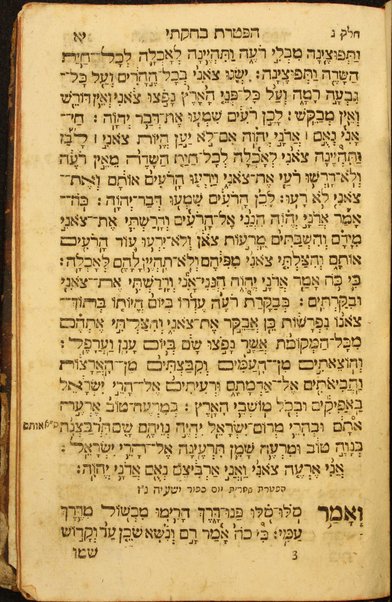 חלק ג הפטרת בחקתי יא
וַתְּפוּצֶינָה מִבְּלִי רֹעֶה וַתִּהְיֶינָה לְאָכְלָה לְכָל־חַיַּת
הַשָּׂדֶה וַתְּפוּצֶינָה׃ יִשְׁגּוּ צֹאנִי בְּכָל הֶהָרִים וְעַל כָּל־
גִּבְעָה רָמָה וְעַל כָּל־פְּנֵי הָאָרֶץ נָפֹצוּ צֹאנִי וְאֵין דּוֹרֵשׁ
וְאֵין מְבַקֵּשׁ׃ לָכֵן רֹעִים שִׁמְעוּ אֶת־דְּבַר יְהוָה׃ חַי־
אָנִי נְאֻם אֲדֹנָי יְהוִה אִם־לֹא יַעַן הֱיוֹת־צֹאנִי לָבַז
וַתִּהְיֶינָה צֹאנִי לְאָכְלָה לְכָל־חַיַּת הַשָּׂדֶה מֵאֵין רֹעֶה
וְלֹא־דָרְשׁוּ רֹעַי אֶת־צֹאנִי וַיִּרְעוּ הָרֹעִים אוֹתָם וְאֶת־
צֹאנִי לֹא רָעוּ׃ לָכֵן הָרֹעִים שִׁמְעוּ דְּבַר־יְהוָה׃ כֹּה־
אָמַר אֲדֹנָי יְהוִה הִנְנִי אֶל־הָרֹעִים וְדָרַשְׁתִּי אֶת־צֹאנִי
מִיָּדָם וְהִשְׁבַּתִּים מֵרְעוֹת צֹאן וְלֹא־יִרְעוּ עוֹד הָרֹעִים
אוֹתָם וְהִצַּלְתִּי צֹאנִי מִפִּיהֶם וְלֹא־תִהְיֶיןָ לָהֶם לְאָכְלָה׃
כִּי כֹּה אָמַר אֲדֹנָי יְהוִה הִנְנִי־אָנִי וְדָרַשְׁתִּי אֶת־צֹאנִי
וּבִקַּרְתִּים׃ כְּבַקָּרַת רֹעֶה עֶדְרוֹ בְּיוֹם הֱיוֹתוֹ בְתוֹךְ־
צֹאנוֹ נִפְרָשׁוֹת כֵּן אֲבַקֵּר אֶת־צֹאנִי וְהִצַּלְתִּי אֶתְהֶם
מִכָּל־הַמְּקוֹמֹת אֲשֶׁר נָפֹצוּ שָׁם בְּיוֹם עָנָן וַעֲרָפֶל׃
וְהוֹצֵאתִים מִן־הָעַמִּים וְקִבַּצְתִּים מִן־הָאֲרָצוֹת
וַהֲבִיאֹתִים אֶל־אַדְמָתָם וּרְעִיתִים אֶל־הָרֵי יִשְׂרָאֵל
בָּאֲפִיקִים וּבְכֹל מוֹשְׁבֵי הָאָרֶץ׃ בְּמִרְעֶה־טּוֹב אֶרְעֶה
אֹתָם וּבְהָרֵי מְרוֹם־יִשְׂרָאֵל יִהְיֶה נְוֵיהֶם שָׁם תִּרְבַּצְנָה
ס״א אותם
בְּנָוֶה טּוֹב וּמִרְעֶה שָׁמֵן תִּרְעֶינָה אֶל־הָרֵי יִשְׂרָאֵל׃
אֲנִי אֶרְעֶה צֹאנִי וַאֲנִי אַרְבִּיצֵם נְאֻם אֲדֹנָי יְהוִה׃
הפטרת שחרית יום כפור ישעיה נ״ז
וְאָמַר סֹלּוּ־סֹלּוּ פַּנּוּ־דָרֶךְ הָרִימוּ מִכְשׁוֹל מִדֶּרֶךְ
עַמִּי׃ כִּי כֹה אָמַר רָם וְנִשָּׂא שֹׁכֵן עַד וְקָדוֹשׁ
3 שמו